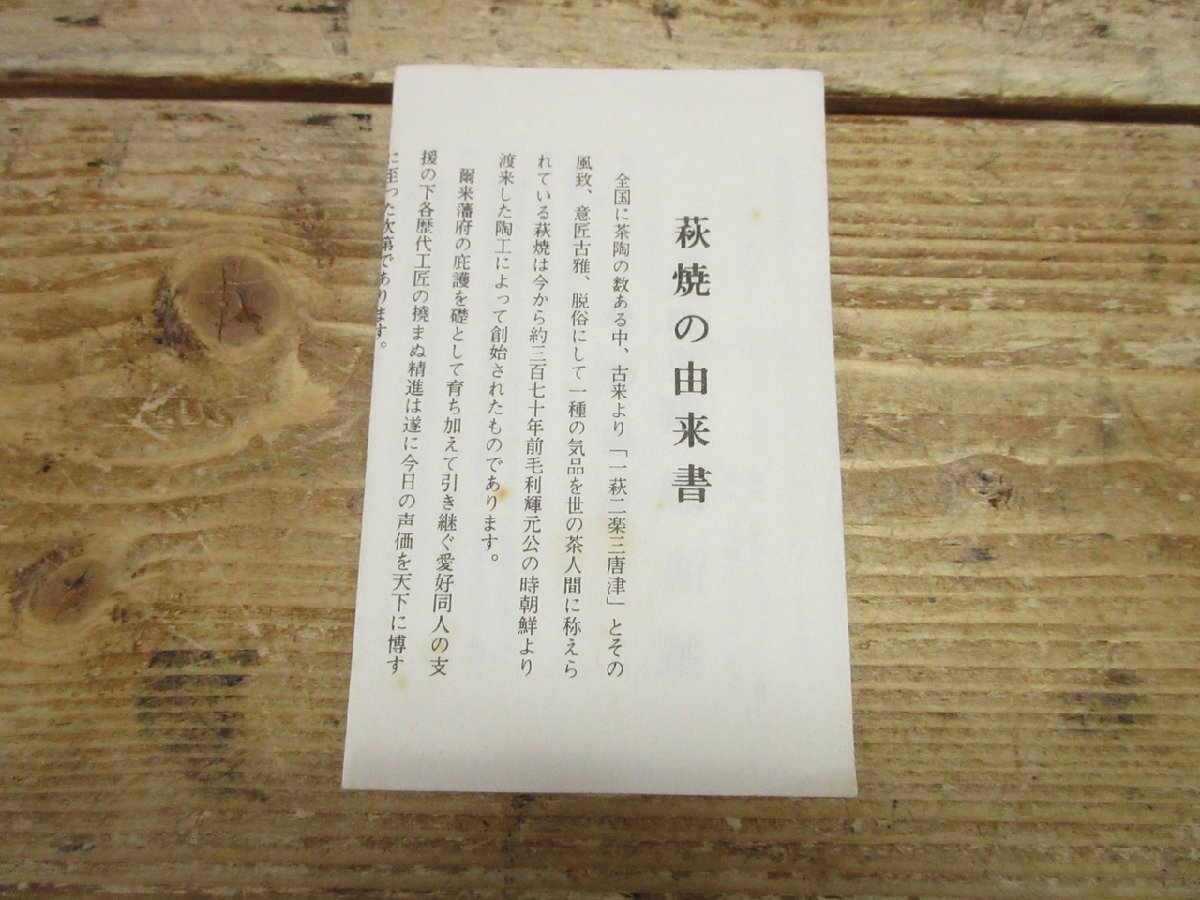 萩焼の由来書
全国に茶陶の数ある中、古来より「一萩二楽三唐津」とその
風致、意匠古雅、脱俗にして一種の気品を世の茶人間に称えら
れている萩焼は今から約三百七十年前毛利輝元公の時朝鮮より
渡来した陶工によって創始されたものであります。
爾来藩府の庇護を礎として育ち加えて引き継ぐ愛好同人の支
援の下各歴代工匠の撓まぬ精進は遂に今日の声価を天下に博す
に至った次第であります。